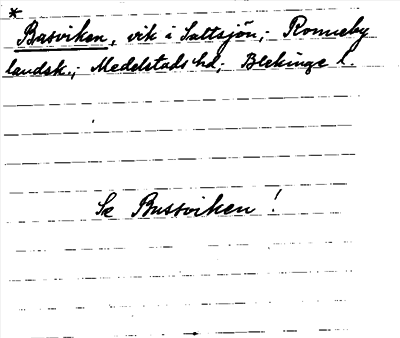 *
Busviken, vik i Saltsjön; Ronneby
landsk.; Medelstads hd; Blekinge l.
Se Bussviken!